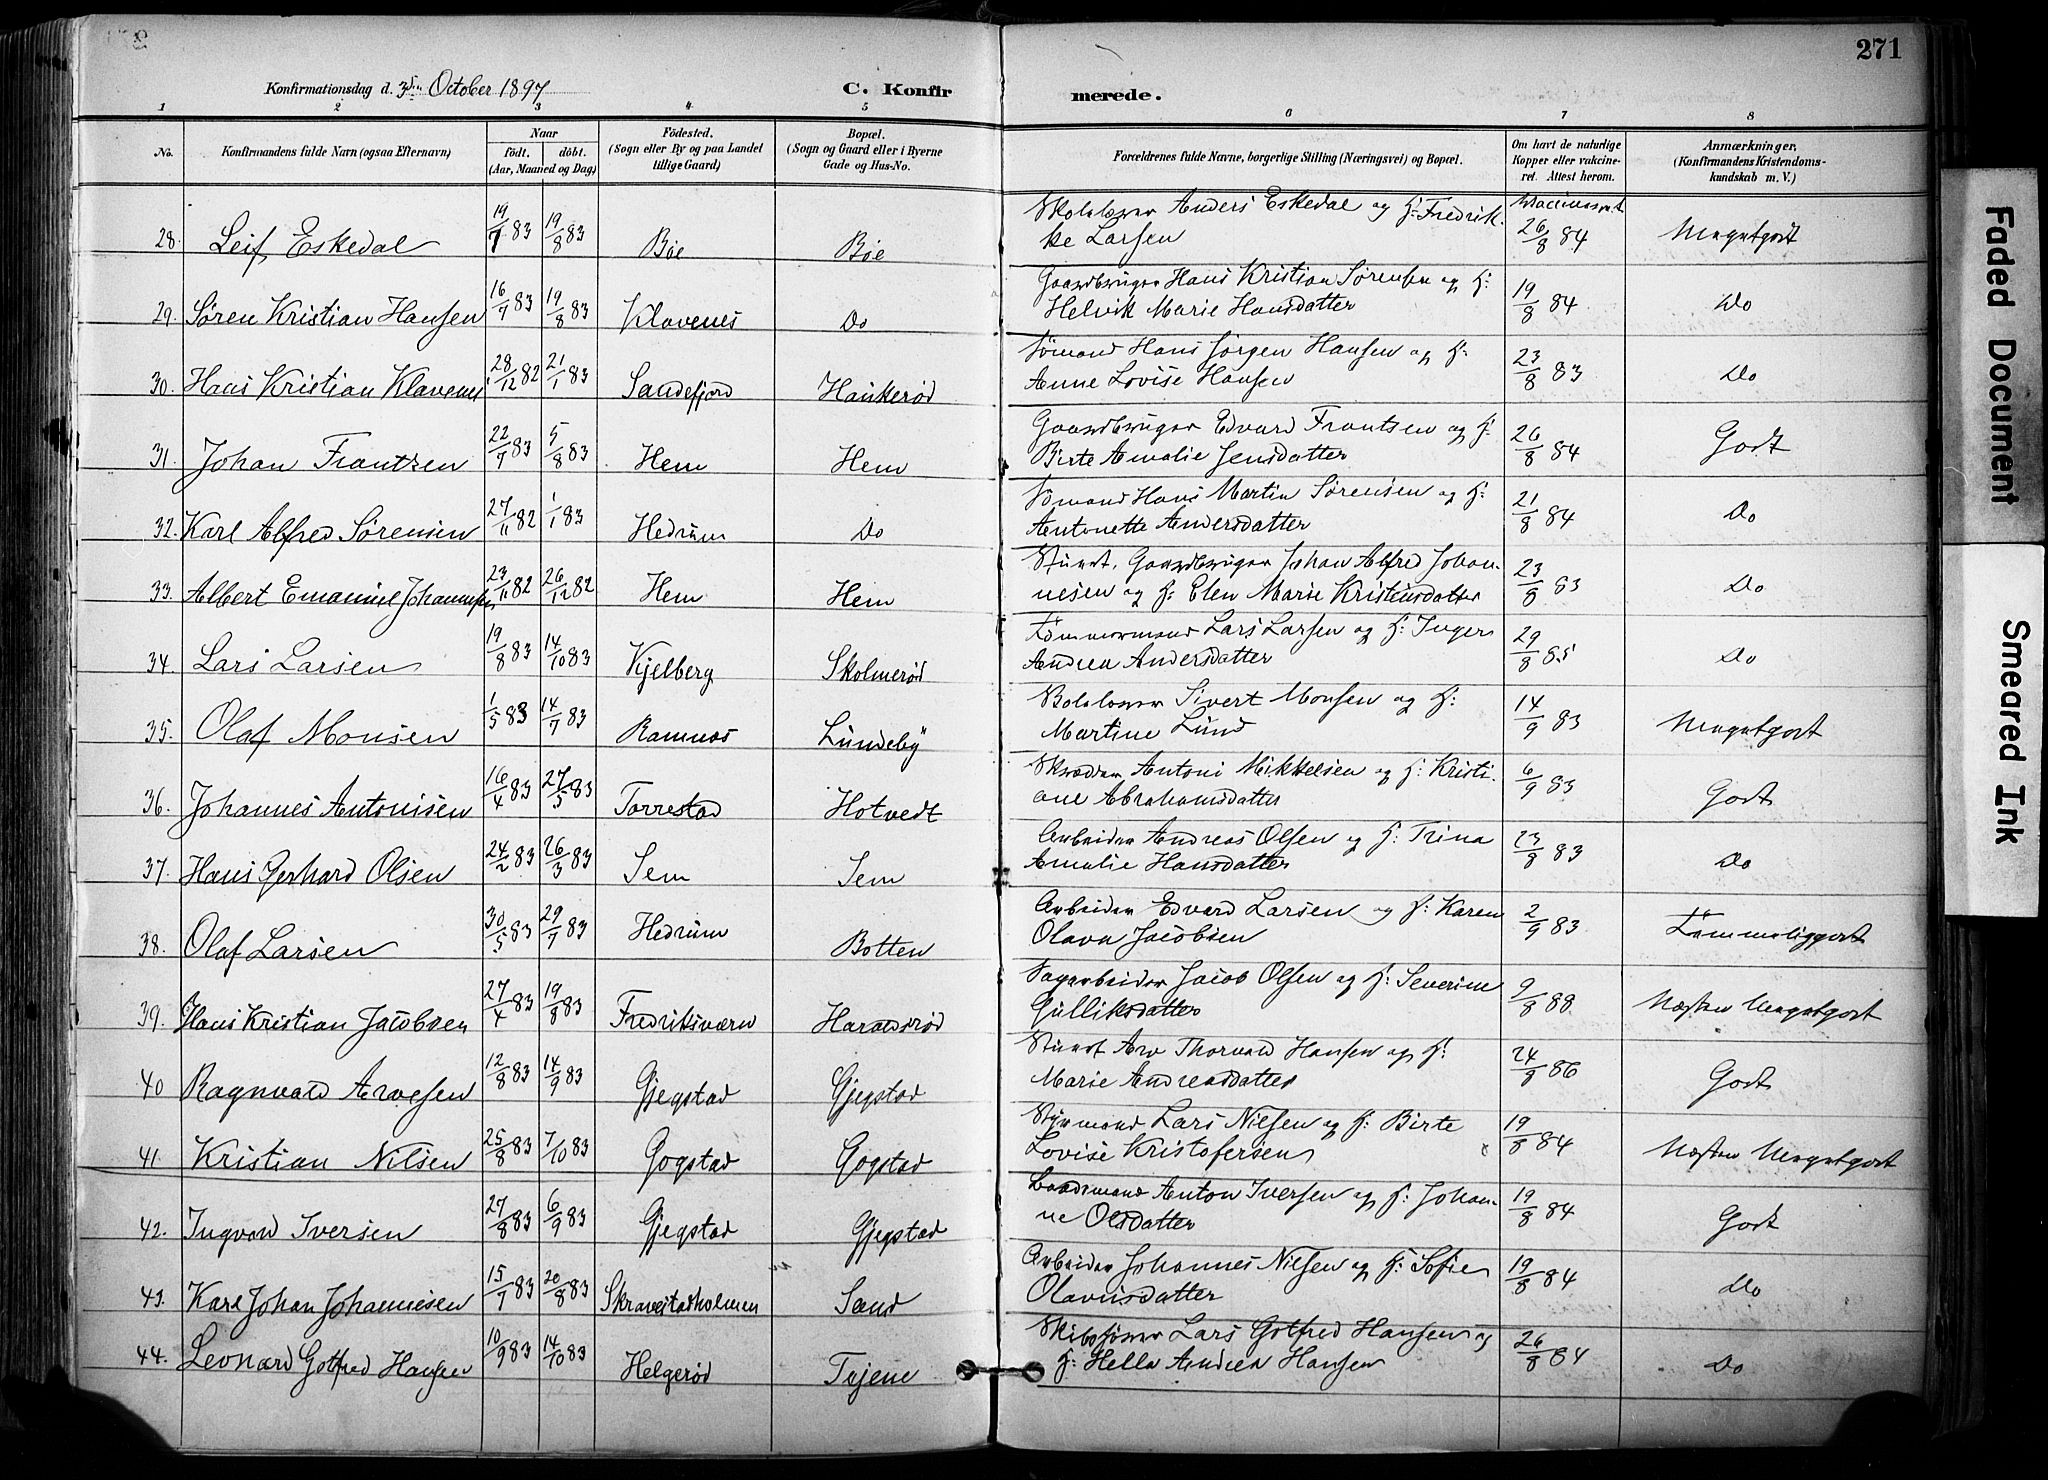 271
Konfirmationsdag d. 3die October 1897
C. Konfirmerede.
1 2 3 4 5 6 7 8
No. Konfirmandens fulde Navn (ogsaa Efternavn) Naar født. døbt. (Aar, Maaned og Dag) Fødested. (Sogn eller By og paa Landet tillige Gaard) Bopæl. (Sogn og Gaard eller i Byerne Gade og Hus-No. Forældrenes fulde Navne, borgerlige Stilling (Næringsvei) og Bopæl. Om havt de naturlige Kopper eller vaccineret. Attest herom. Anmærkninger, (Konfirmandens Kristendomskundskab m. V.)
28. Leif Eskedal 19/7 83 19/8 83 Bøe Bøe Skolelærer Anders Eskedal og H: Fredrikke Larsen Vaccineret 26/8 84 Megetgodt
29. Søren Kristian Hansen 16/7 83 19/8 83 Klavenes Do Gaardbruger Hans Kristian Sørensen og H: Helvik Marie Hansdatter 19/8 84 Do
30. Hans Kristian Klavenes 28/12 82 21/1 83 Sandefjord Haukerød Sømand Hans Jørgen Hansen og H: Anne Lovise Hansen 23/8 83 Do
31. Johan Frantzen 22/7 83 5/8 83 Hem Hem Gaardbruger Edvard Frantsen og H: Birte Amalie Jensdatter 26/8 84 Godt
32. Karl Alfred Sørensen 27/11 82 1/1 83 Hedrum Do Sømand Hans Martin Sørensen og H: Antonette Andersdatter 21/8 84 Do
33. Albert Emanuel Johannesen 23/11 82 26/12 82 Hem Hem Styrt. Gaardbruger Johan Alfred Johannesen og H: Elen Marie Kristiansdatter 23/8 83 Do
34. Lars Larsen 19/8 83 14/10 83 Kjelberg Skolmerød Tømmermand Lars Larsen og H: Inger Andrea Andersdatter 29/8 85 Do
35. Olaf Monsen 1/5 83 14/7 83 Ramnes Lundeby Skolelærer Sivert Monsen og H: Martine Lund 14/9 83 Megetgodt
36. Johannes Antonisen 16/4 83 27/5 83 Torrestad Hotvedt Skræder Antoni Mikkelsen og H: Kristiane Abrahamsdatter 6/9 83 Godt
37. Hans Gerhard Olsen 24/2 83 26/3 83 Sem Sem Arbeider Andreas Olsen og H: Trina Amalie Hansdatter 23/8 83 Do
38. Olaf Larsen 30/5 83 29/7 83 Hedrum Botten Arbeider Edvard Larsen og H: Karen Olava Jacobsen 2/9 83 Temmeliggodt
39. Hans Kristian Jacobsen 27/4 83 19/8 83 Fredriksværn Haraldsrød Sagarbeider Jacob Olsen og H: Severine Gulliksdatter 9/8 88 Næsten Megetgodt
40 Ragnvald Arvesen 12/8 83 14/9 83 Gjegstad Gjegstad Stuert Arv Thorvald Hansen og H: Marie Andreasdatter 24/8 86 Godt
41. Kristian Nilsen 25/8 83 7/10 83 Gogstad Gogstad Styrmand Lars Nilsen og H: Birte Lovise Kristofersen 19/8 84 Næsten Megetgodt
42. Ingvard Iversen 27/8 83 6/9 83 Gjegstad Gjegstad Baadsmand Anton Iversen og H: Johanne Olsdatter 19/8 84 Godt
43. Karl Johan Johannesen 15/7 83 20/8 83 Skravestadholmen Sand Arbeider Johannes Nilsen og H: Sofie Olavusdatter 19/8 84 Do
44. Leonard Gotfred Hansen 10/9 83 14/10 83 Helgerød Tujene Skibsfører Lars Gotfred Hansen og H: Hella Andrea Hansen 26/8 84 Do
Faded Document
Smeared Ink